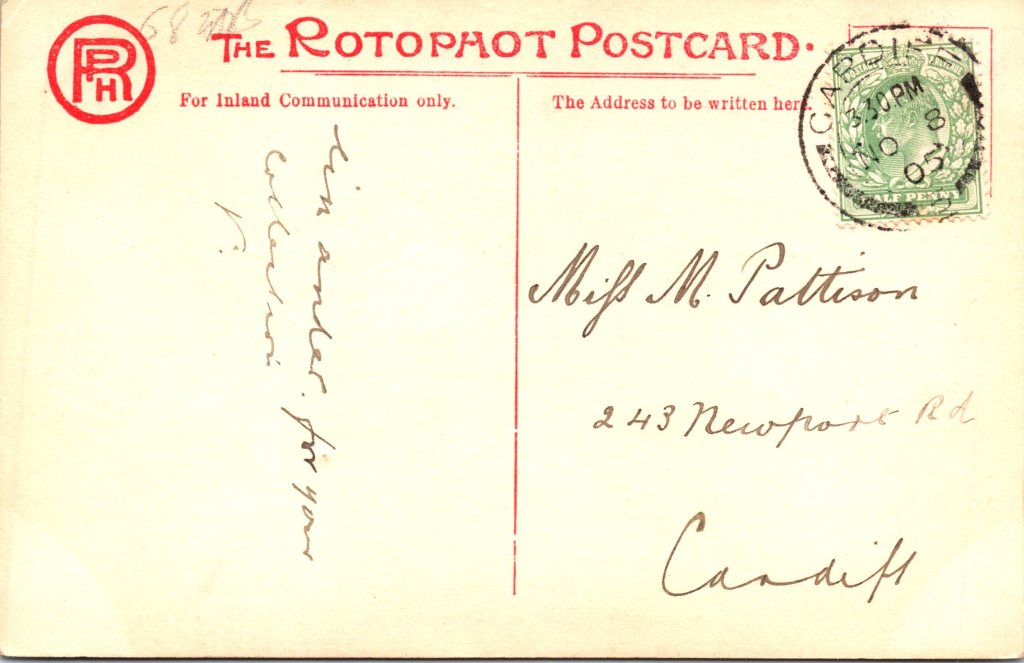 THE ROTOPHOT POSTCARD.
RPH
For Inland Communication only.
The Address to be written here.
CARDIFF
3.30 PM
NO 8
05
HALF PENNY
for your
Collection
V.
Miss M. Pattison
243 Newport Rd
Cardiff